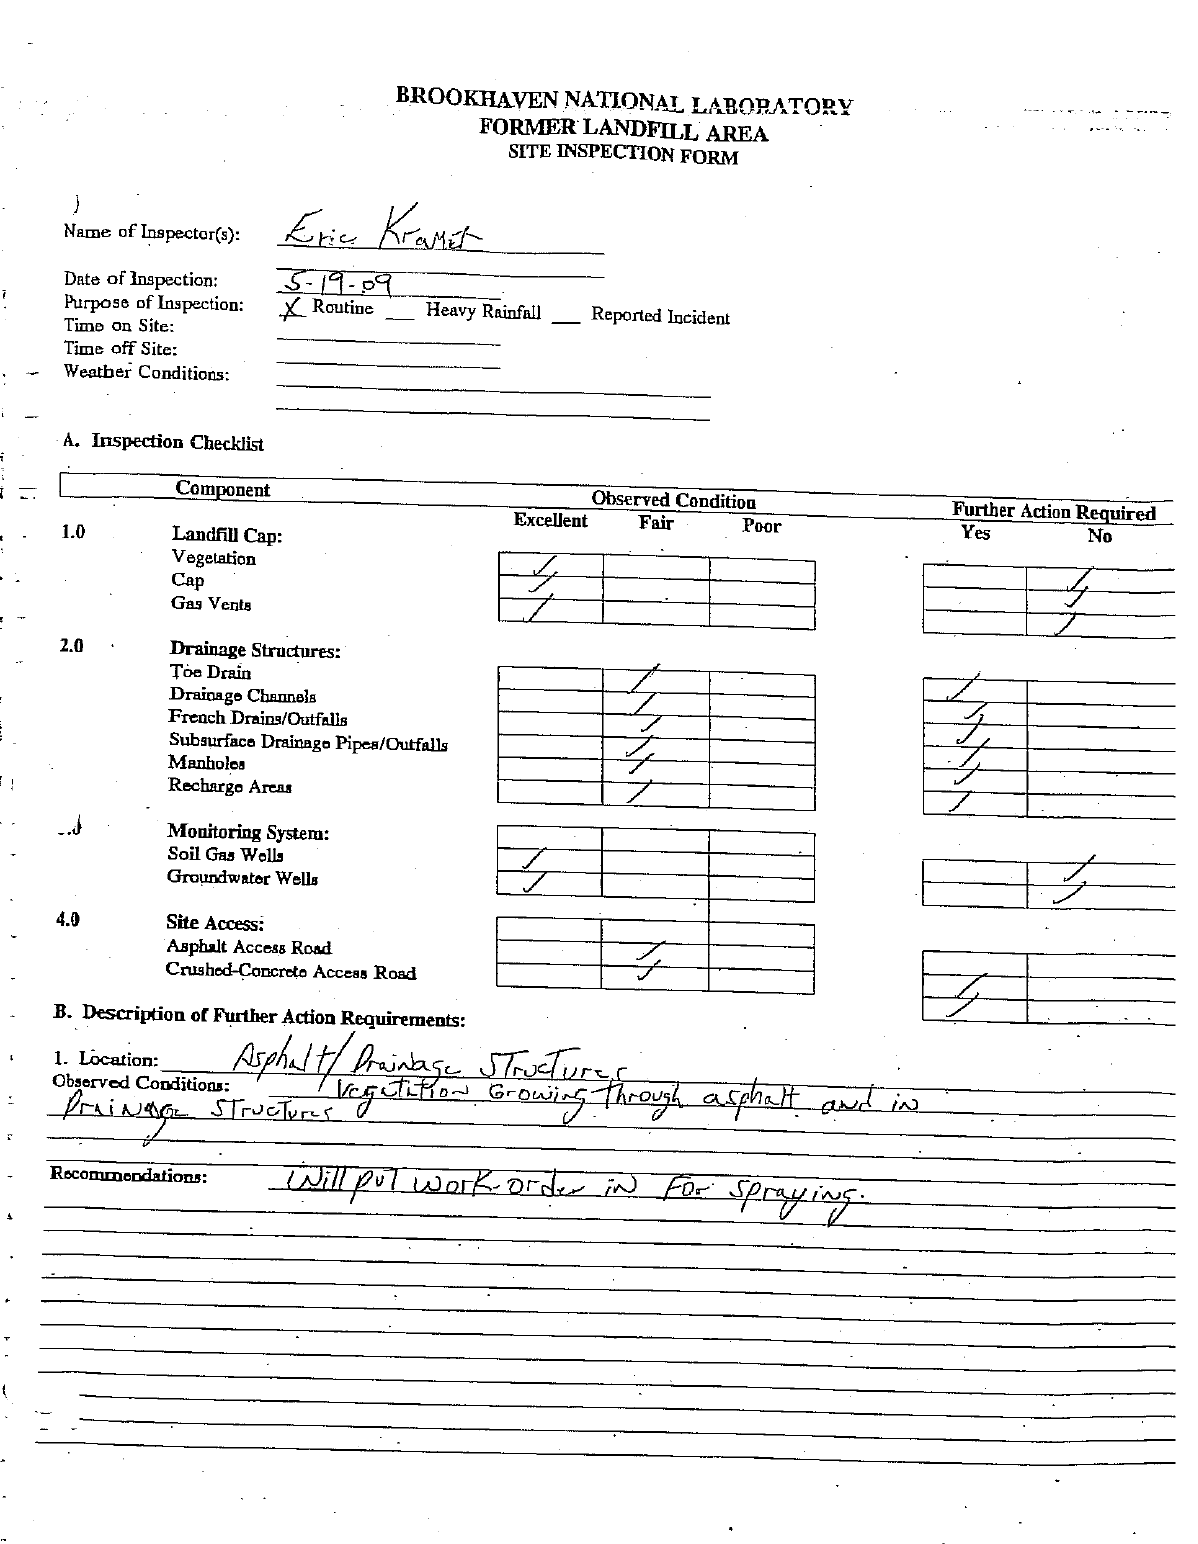 BROOKHAVEN NATIONAL LABORATORY
FORMER LANDFILL AREA
SITE INSPECTION FORM
Name of Inspector(s): Eric
Date of Inspection: 5-19-09
Purpose of Inspection: X Routine ___ Heavy Rainfall ___ Reported Incident
Time on Site:
Time off Site:
Weather Conditions:
A. Inspection Checklist
Component Observed Condition Further Action Required
Excellent Fair Poor Yes No
1.0 Landfill Cap:
Vegetation ✓ ✓
Cap ✓ ✓
Gas Vents ✓ ✓
2.0 Drainage Structures:
Toe Drain ✓ ✓
Drainage Channels ✓ ✓
French Drains/Outfalls ✓ ✓
Subsurface Drainage Pipes/Outfalls ✓ ✓
Manholes ✓ ✓
Recharge Areas ✓ ✓
Monitoring System:
Soil Gas Wells ✓ ✓
Groundwater Wells ✓ ✓
4.0 Site Access:
Asphalt Access Road ✓ ✓
Crushed-Concrete Access Road ✓ ✓
B. Description of Further Action Requirements:
1. Location: Asphalt/Drainage Structures
Observed Conditions: Vegetition Growing Through asphalt and in
Drainage Structures
Recommendations: Will put work order in For spraying.